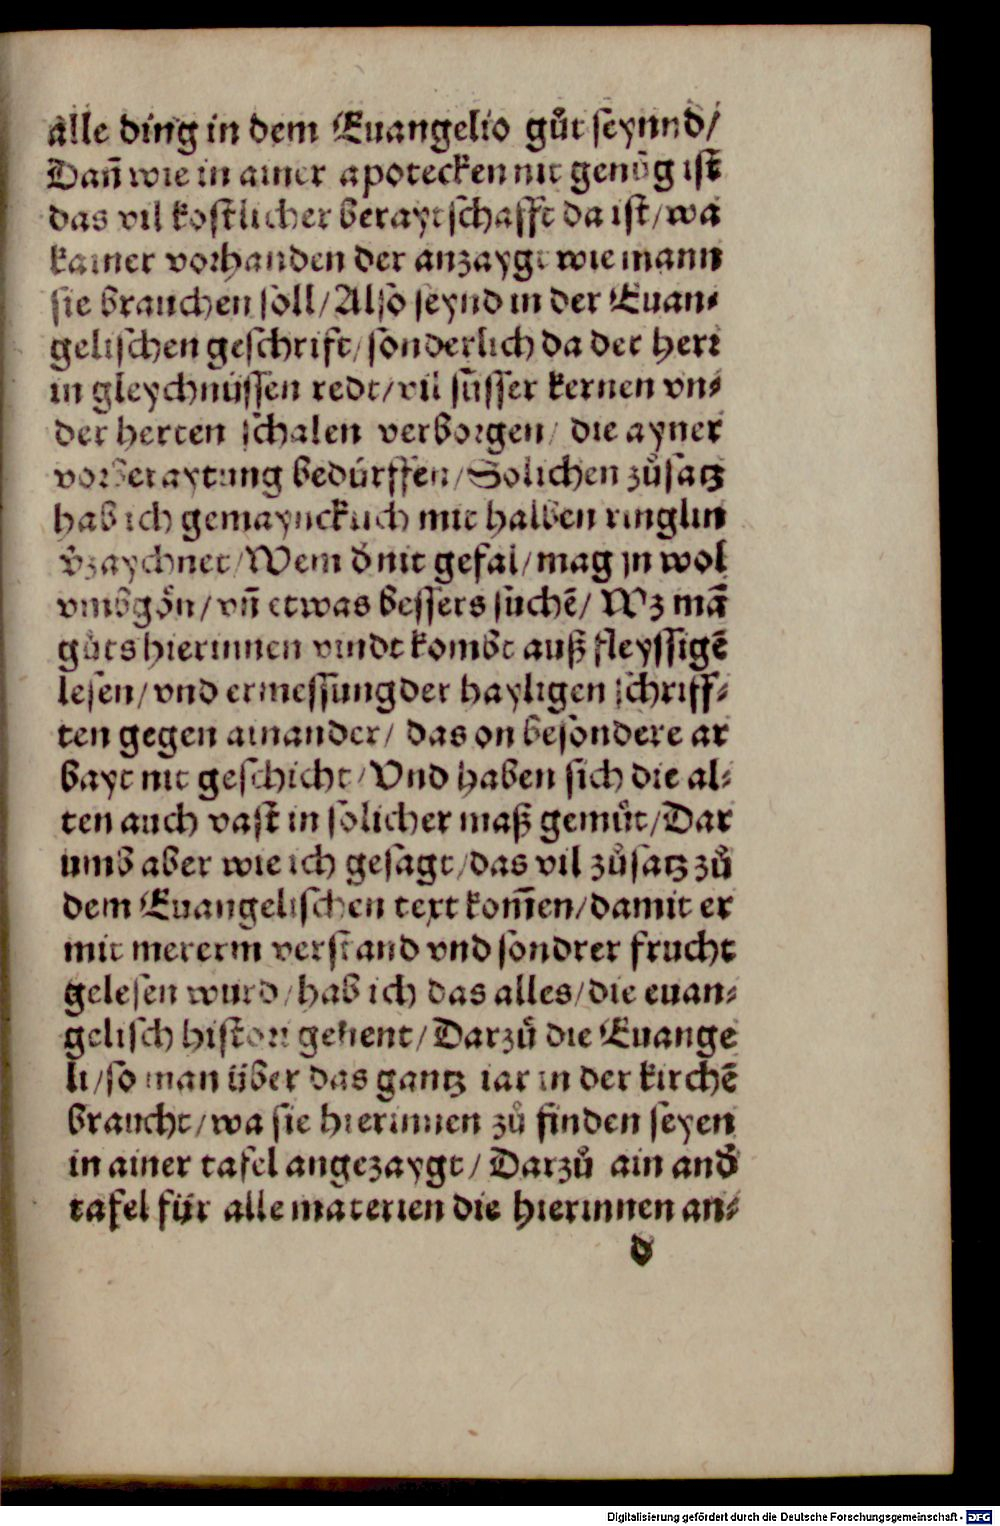 alle ding in dem Euangelio guͦt seynnd/
Dañ wie in ainer apotecken nit genuͦg ist
das vil kostlicher beraytschafft da ist/wa
kainer vorhanden der anzaygt wie mann
sie brauchen soll/Also seynd in der Euan⸗
gelischen geschrift/sonderlich da der herr
in gleychnüssen redt/vil süsser kernen vn⸗
der herten schalen verborgen/ die ayner
vorberaytung bedürffen/Solichen zuͦsatz
hab ich gemaynckuch mit halben ringlin
v̄zaychnet/Wem d̄ nit gefal/mag jn wol
vmbgoͤn/vñ etwas bessers suchē/ Wz mā
guͦts hierinnen vindt kombt auß fleyssigē
lesen/vnd ermessung der hayligen schriff⸗
ten gegen ainander/ das on besondere ar
bayt nit geschicht/Vnd haben sich die al⸗
ten auch vast in solicher maß gemuͦt/Dar
umb aber wie ich gesagt/das vil zuͦsatz zuͦ
dem Euangelischen text kom̄en/damit er
mit mererm verstand vnd sondrer frucht
gelesen wurd/hab ich das alles/die euan⸗
gelisch histori genent/Darzuͦ die Euange
li/so man über das gantz iar in der kirchē
braucht/wa sie hierinnen zuͦ finden seyen
in ainer tafel angezaygt/Darzuͦ ain and̄
tafel für alle materien die hierinnen an⸗
d
Digitalisierung gefördert durch die Deutsche Forschungsgemeinschaft - DFG